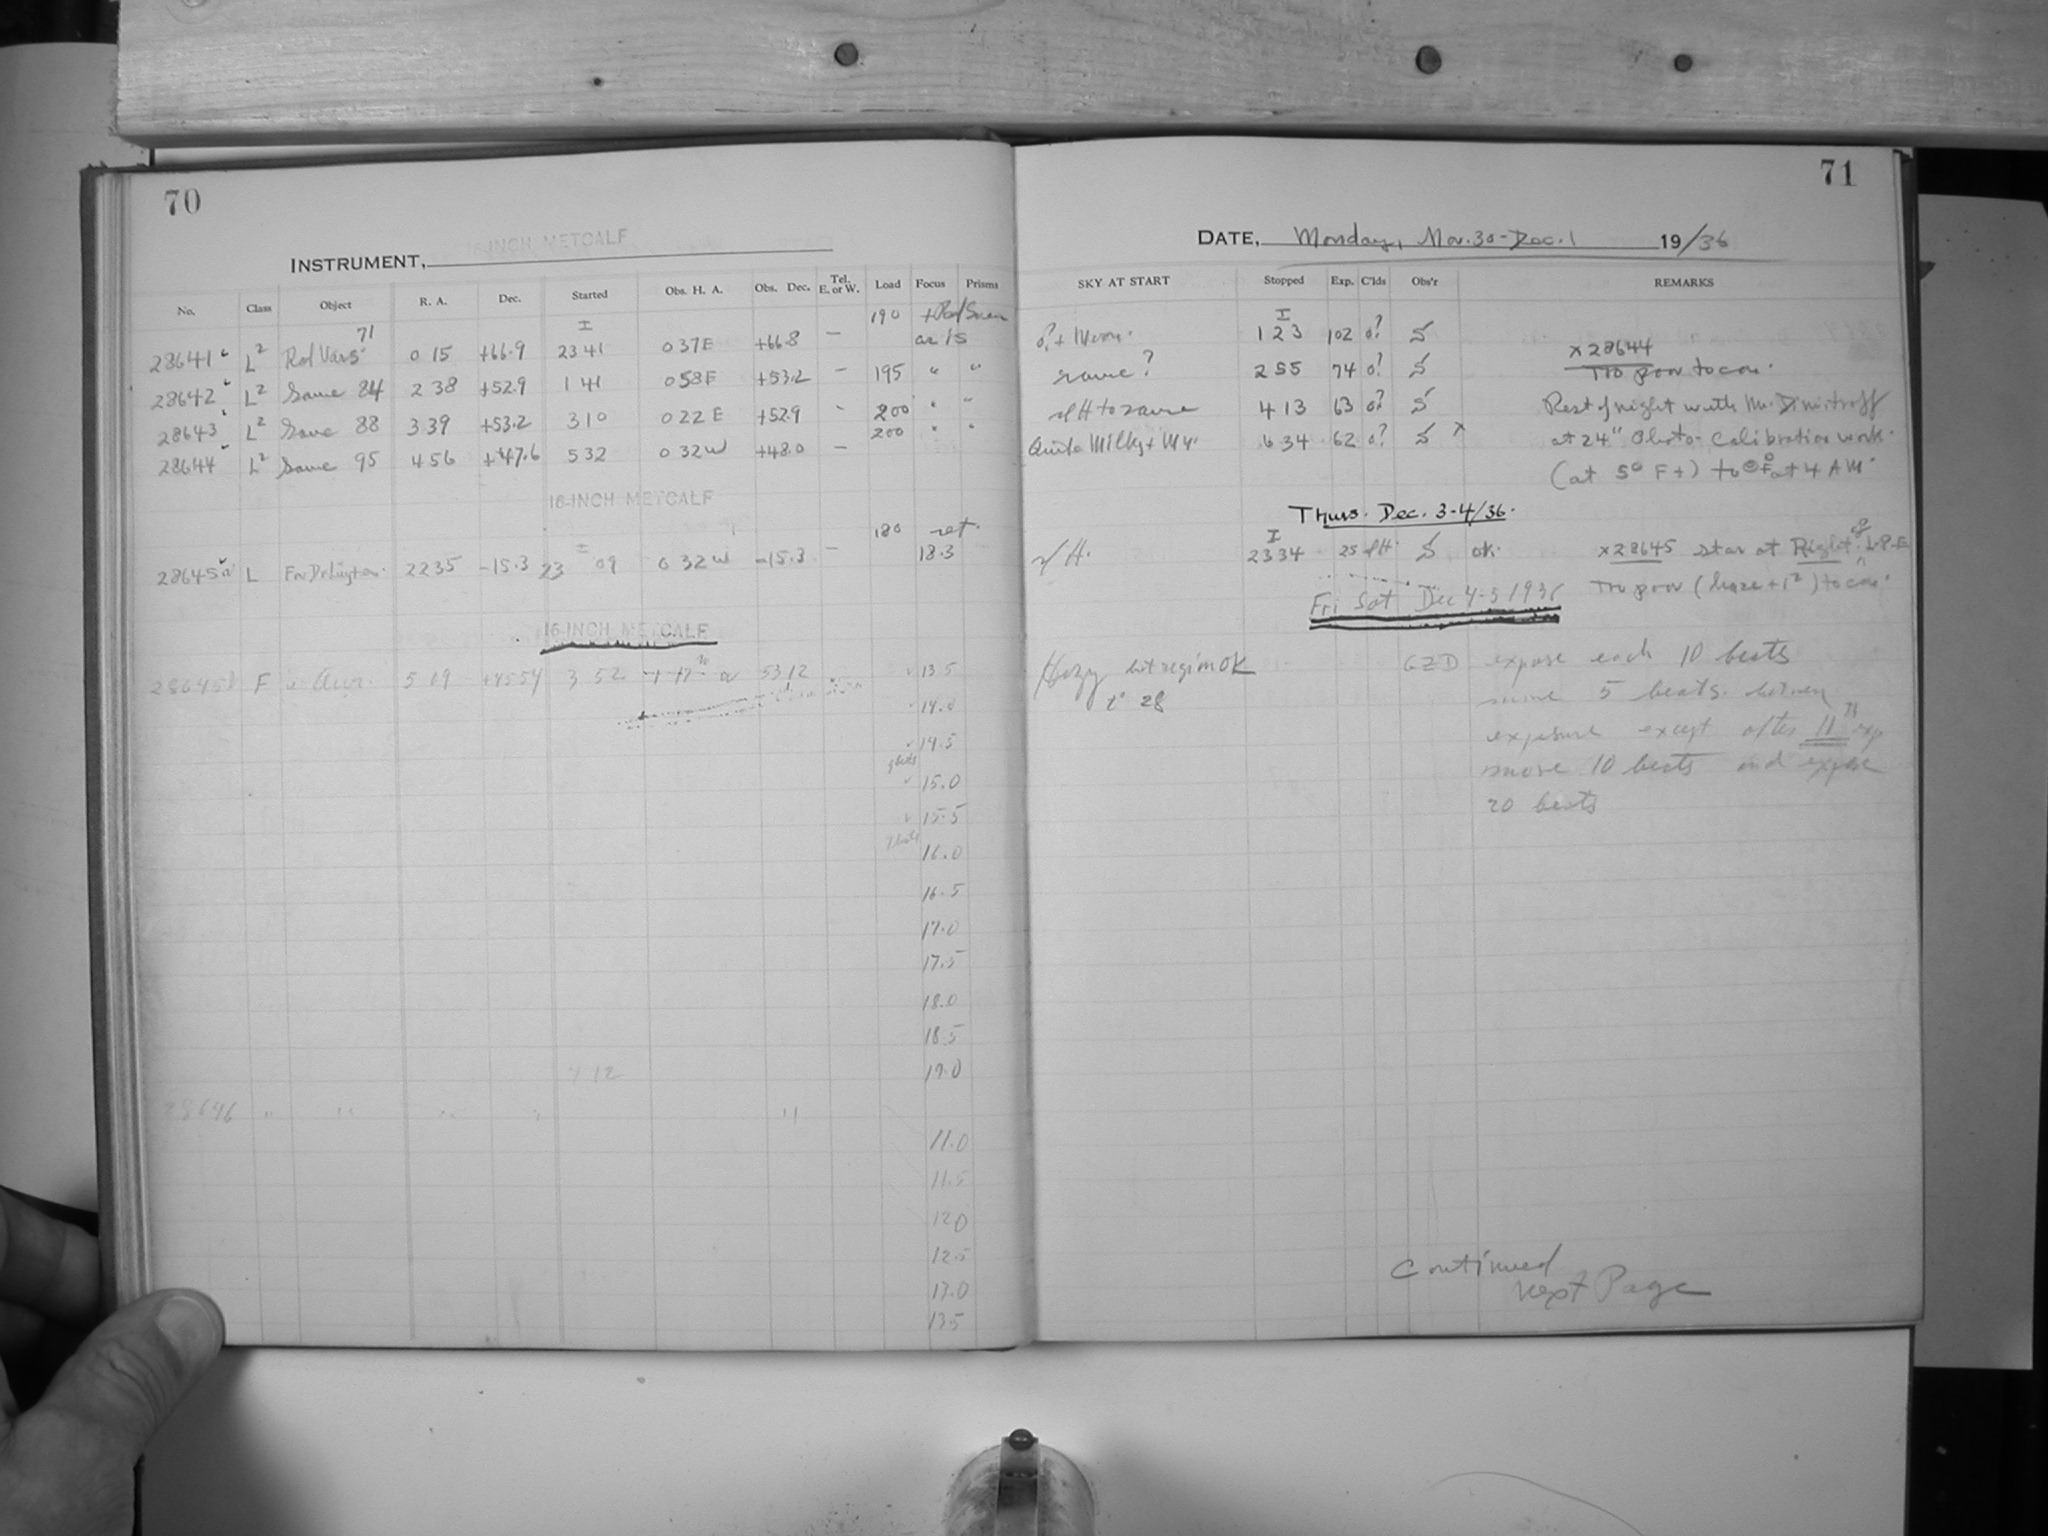 70
INSTRUMENT, 16-INCH METCALF
No. Class Object R. A. Dec. Started Obs. H. A. Obs. Dec. Tel. E. or W. Load Focus Prisms
71 I 190
28641 L² 0 15 +66.9 23 41 0 37 E +66.8 — as is
28642 L² Same 84 2 38 +52.9 1 41 0 58 E +53.2 — 195 " "
28643 L² Same 88 3 39 +53.2 3 10 0 22 E +52.9 - 200 " "
28644 L² Same 95 4 56 +47.6 5 32 0 32 W +48.0 — 200 " "
16-INCH METCALF
180 ret.
28645a L 22 35 -15.3 23 09 0 32 W -15.3 — 18.3
16-INCH METCALF
28645b F Aur. 5 09 +45 54 3 52 53 12 13.5
14.0
14.5
15.0
15.5
16.0
16.5
17.0
17.5
18.0
18.5
4 12 19.0
28646 " " " " "
11.0
11.5
12.0
12.5
13.0
13.5
71
DATE, Monday, Nov. 30 - Dec. 1 19/36
SKY AT START Stopped Exp. C'lds Obs'r REMARKS
I
1 23 102 0? S
x 28644
same? 2 55 74 0? S Too poor to cou.
to same 4 13 63 0? S Rest of night with Mr. Dimitroff
Quite Milky + 6 34 62 0? S x at 24" Photo-Calibration work.
(at 5° F +) to 0°F at 4 AM.
Thurs. Dec. 3-4/36.
I
H. 23 34 25 S ok. x 28645 star at Right
Too poor (haze + ) to cou.
Fri Sat Dec 4-5 1936
Hazy but OK GZD expose each 10 beats
t° 28 move 5 beats between
exposure except after 11th exp
move 10 beats and expose
20 beats
Continued
next Page